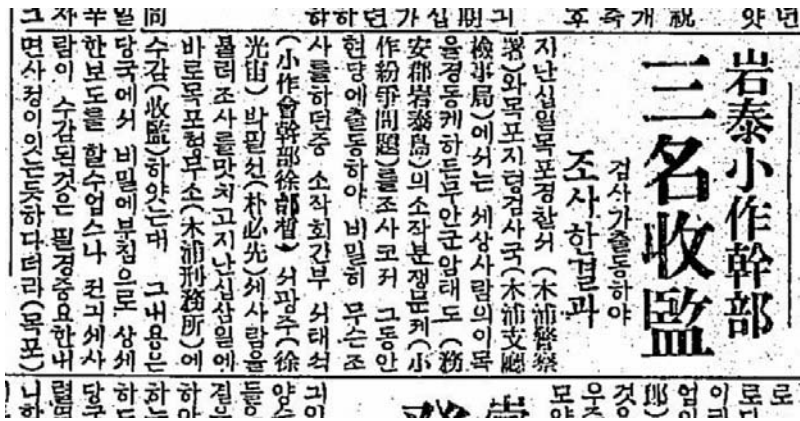 岩泰小作幹部
三名收監
검사가출동하야
조사한결과
지난십일목포경찰서 (木浦警察
署)와목포지텽검사국(木浦支廳
檢事局)에서는 세상사람의이목
을경동케하든무안군암태도 (務
安郡岩泰島)의소작분쟁문뎨(小
作紛爭問題)를조사코저 그동안
현당에출동하야 비밀히 무슨조
사를하던중 소작회간부 서태석
(小作會幹部徐邰晳) 서광주(徐
光宙) 박필선(朴必先)세사람을
불러조사를맛치고지난십삼일에
바로목포형무소(木浦刑務所)에
수감(收監)하얏는대 그내용은
당국에서 비밀에부침으로 상세
한보도를 할수업스나 전긔세사
람이 수감된것은 필경중요한내
면사정이잇는듯하다더라(목포)